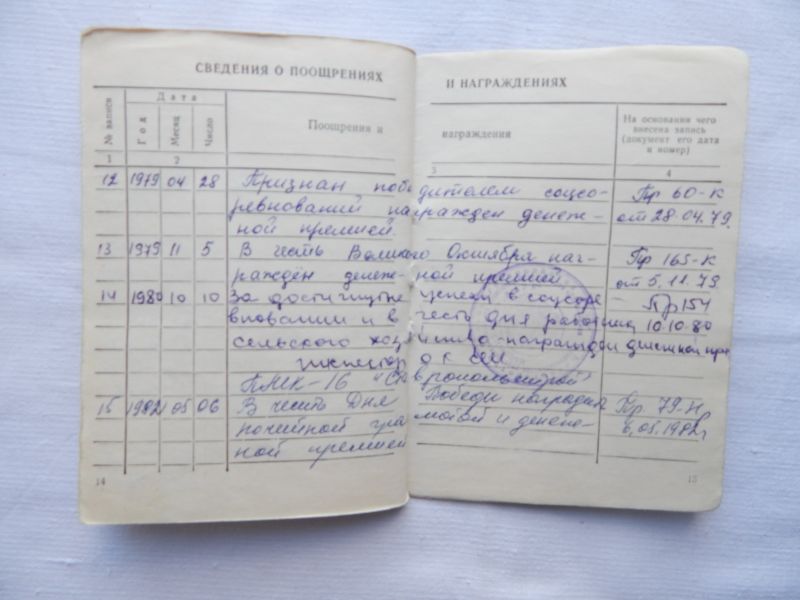 СВЕДЕНИЯ О ПООЩРЕНИЯХ И НАГРАЖДЕНИЯХ
№ записи Дата Поощрения и награждения На основании чего внесена запись (документ его дата и номер)
Год Месяц Число
1 2 3 4
12 1979 04 28 Признан победителем соцсо- Пр 60-К
ревнований награжден денеж- от 28.04.79.
ной премией.
13 1979 11 5 В честь Великого Октября наг- Пр 165-К
ражден денежной премией от 5.11.79
14 1980 10 10 За достигнутые успехи в соцсоре Пр 154
вновании и в честь дня работниц 10.10.80
сельского хозяйства награжден денежной пре
инспектор о к
ПМК-16
15 1982 05 06 В честь Дня Победы награжден Пр 79-К
почетной грамотой и денеж- 6.05.1982г
ной премией
14 15